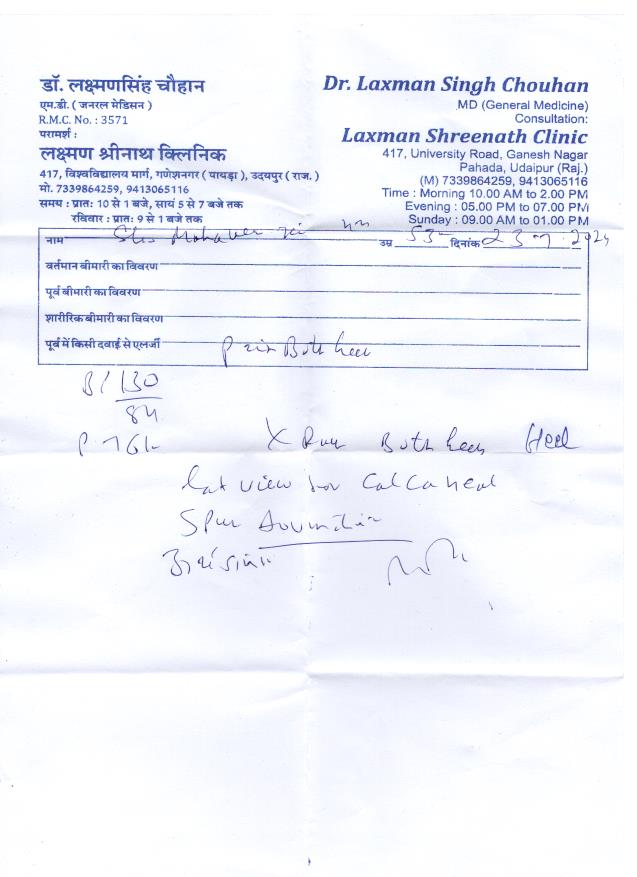 डॉ. लक्ष्मणसिंह चौहान
एम.डी. ( जनरल मेडिसन )
R.M.C. No. : 3571
परामर्श :
लक्ष्मण श्रीनाथ क्लिनिक
417, विश्वविद्यालय मार्ग, गणेशनगर ( पायड़ा ), उदयपुर ( राज. )
मो. 7339864259, 9413065116
समय : प्रातः 10 से 1 बजे, सायं 5 से 7 बजे तक
रविवार : प्रातः 9 से 1 बजे तक
Dr. Laxman Singh Chouhan
MD (General Medicine)
Consultation:
Laxman Shreenath Clinic
417, University Road, Ganesh Nagar
Pahada, Udaipur (Raj.)
(M) 7339864259, 9413065116
Time : Morning 10.00 AM to 2.00 PM
Evening : 05.00 PM to 07.00 PM
Sunday : 09.00 AM to 01.00 PM
नाम उम्र 53 दिनांक 23-7-2024
वर्तमान बीमारी का विवरण
पूर्व बीमारी का विवरण
शारीरिक बीमारी का विवरण
पूर्व में किसी दवाई से एलर्जी
Pain Both heel
130
84
P 76/-
X Ray Both Heel
Lat view for Calcaneal
Spur